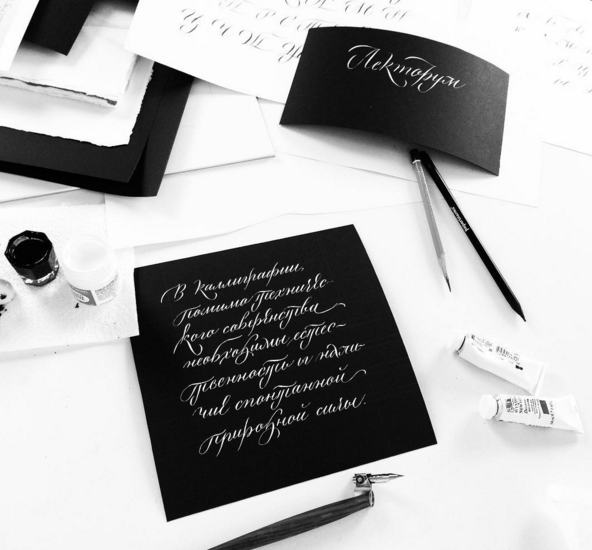 Лекторум
В каллиграфии,
помимо техничес-
кого совершенства
необходимы естес-
твенность и нали-
чие спонтанной
природной силы.